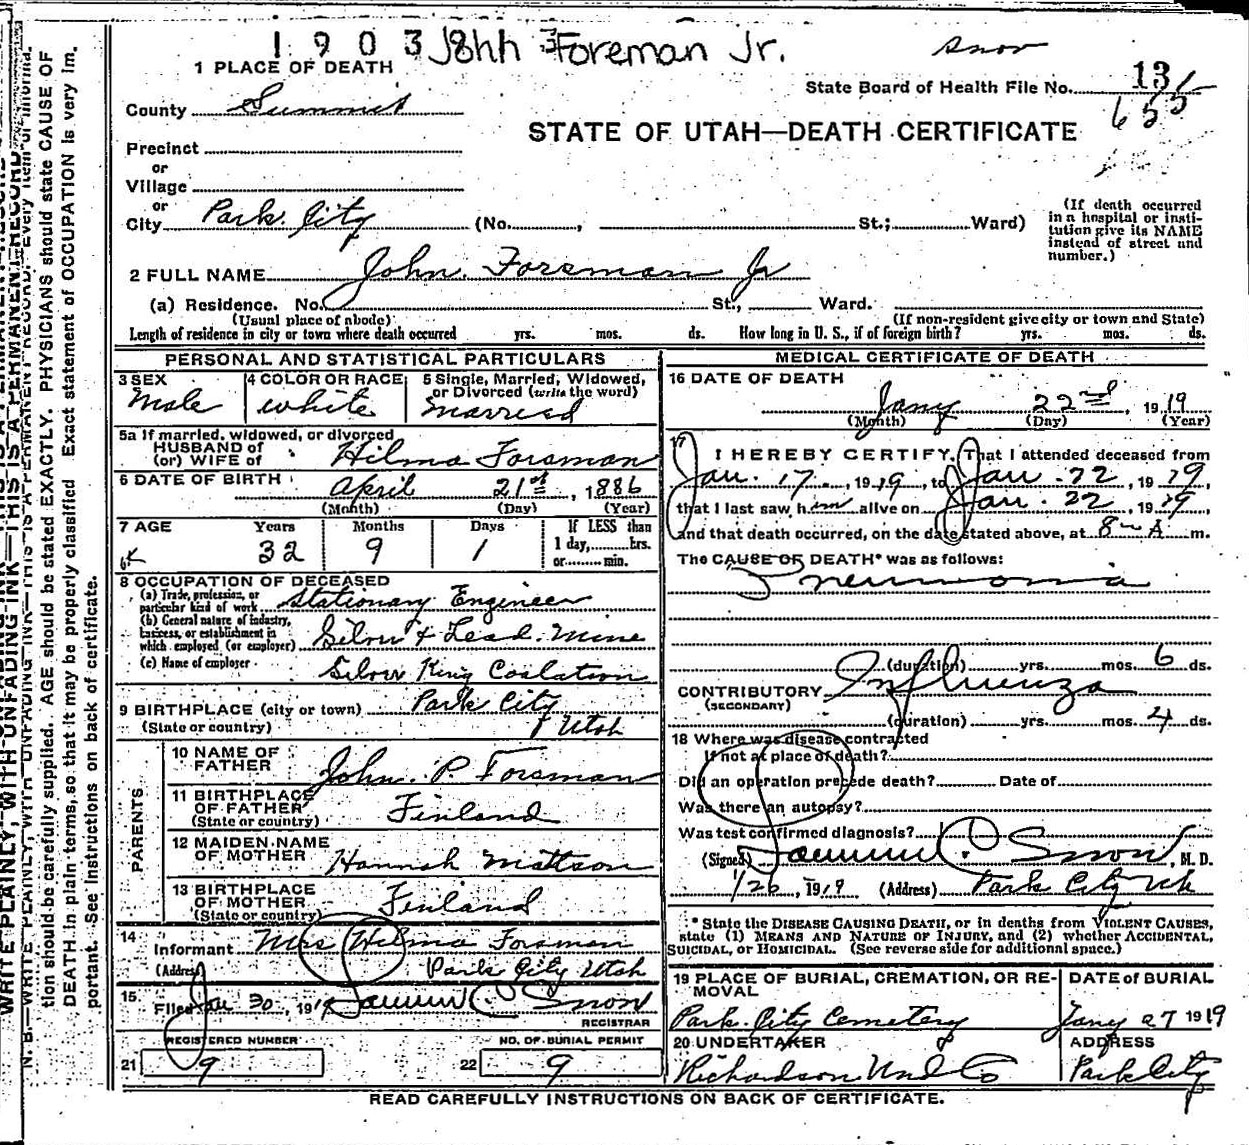 1903 John Foreman Jr.
Snow
1 PLACE OF DEATH
State Board of Health File No. 13
655
County Summit
STATE OF UTAH—DEATH CERTIFICATE
Precinct
or
Village
or
City Park City (No. , St.; Ward)
(If death occurred in a hospital or insti-
tution give its NAME instead of street and number.)
2 FULL NAME John Forsman Jr
(a) Residence. No. St., Ward.
(Usual place of abode) (If non-resident give city or town and State)
Length of residence in city or town where death occurred yrs. mos. ds. How long in U. S., if of foreign birth? yrs. mos. ds.
PERSONAL AND STATISTICAL PARTICULARS
3 SEX 4 COLOR OR RACE 5 Single, Married, Widowed,
or Divorced (write the word)
Male white married
5a If married, widowed, or divorced
HUSBAND of
(or) WIFE of Hilma Forsman
6 DATE OF BIRTH April 21st, 1886
(Month) (Day) (Year)
7 AGE Years Months Days If LESS than
1 day, hrs.
or min.
32 9 1
8 OCCUPATION OF DECEASED
(a) Trade, profession, or
particular kind of work Stationary Engineer
(b) General nature of industry,
business, or establishment in
which employed (or employer) Silver & Lead Mine
(c) Name of employer Silver King Coalation
9 BIRTHPLACE (city or town) Park City
(State or country) Utah
PARENTS
10 NAME OF
FATHER John. P. Forsman
11 BIRTHPLACE
OF FATHER
(State or country) Finland
12 MAIDEN NAME
OF MOTHER Hannah Mattson
13 BIRTHPLACE
OF MOTHER
(State or country) Finland
14
Informant Mrs Hilma Forsman
(Address) Park City Utah
15
Filed Jan 30, 1919 C Snow
REGISTRAR
REGISTERED NUMBER NO. OF BURIAL PERMIT
21 9 22 9
MEDICAL CERTIFICATE OF DEATH
16 DATE OF DEATH
Jany 22nd, 1919
(Month) (Day) (Year)
17 I HEREBY CERTIFY, That I attended deceased from
Jan. 17, 1919, to Jan. 22, 1919,
that I last saw him alive on Jan. 22, 1919,
and that death occurred, on the date stated above, at 8 A m.
The CAUSE OF DEATH* was as follows:
Pneumonia
(duration) yrs. mos. 6 ds.
CONTRIBUTORY Influenza
(SECONDARY)
(duration) yrs. mos. 4 ds.
18 Where was disease contracted
If not at place of death?
Did an operation precede death? Date of
Was there an autopsy?
Was test confirmed diagnosis?
(Signed) C. Snow, M. D.
1/26, 1919 (Address) Park City Utah
* State the DISEASE CAUSING DEATH, or in deaths from VIOLENT CAUSES,
state (1) MEANS AND NATURE OF INJURY, and (2) whether ACCIDENTAL,
SUICIDAL, or HOMICIDAL. (See reverse side for additional space.)
19 PLACE OF BURIAL, CREMATION, OR RE-
MOVAL DATE of BURIAL
Park City Cemetery Jany 27 1919
20 UNDERTAKER ADDRESS
Richardson Und Co Park City
READ CAREFULLY INSTRUCTIONS ON BACK OF CERTIFICATE.
WRITE PLAINLY, WITH UNFADING INK—THIS IS A PERMANENT RECORD
N. B.—WRITE PLAINLY, WITH UNFADING INK—THIS IS A PERMANENT RECORD. Every item of informa-
tion should be carefully supplied. AGE should be stated EXACTLY. PHYSICIANS should state CAUSE OF
DEATH in plain terms, so that it may be properly classified. Exact statement of OCCUPATION is very im-
portant. See instructions on back of certificate.